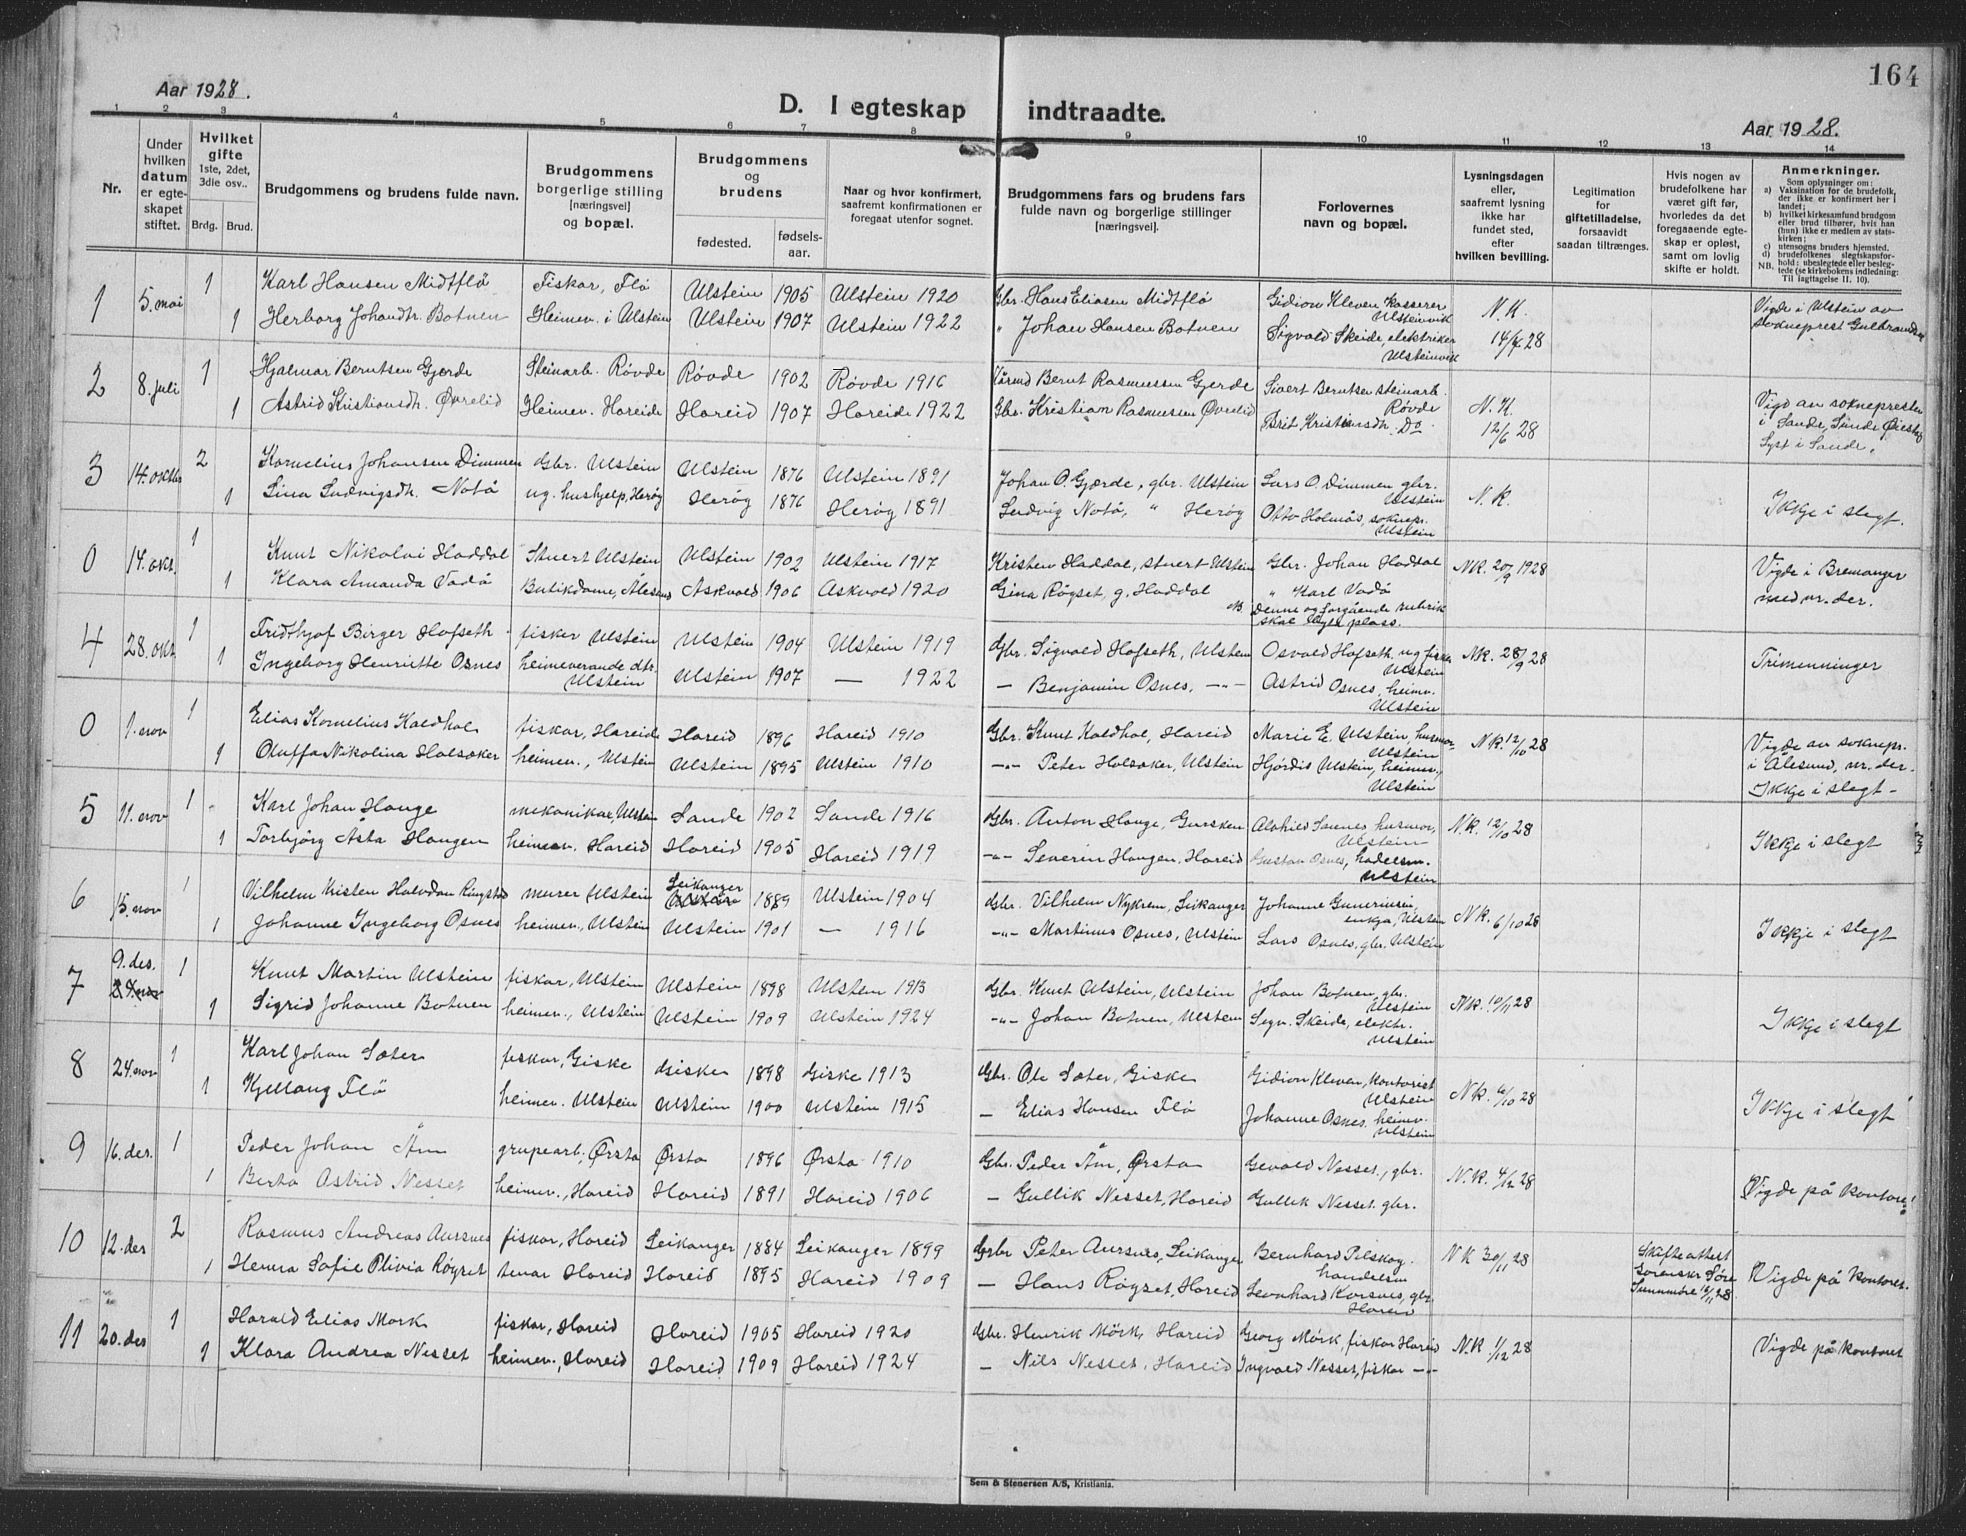 164
Aar 1928.
D. I egteskap indtraadte.
Aar 1928.
1 2 3 4 5 6 7 8 9 10 11 12 13 14
Nr.
Under hvilken datum er egteskapet stiftet.
Hvilket gifte 1ste, 2det, 3die osv..
Brdg. Brud.
Brudgommens og brudens fulde navn.
Brudgommens borgerlige stilling [næringsvei] og bopæl.
Brudgommens og brudens
fødested. fødselsaar.
Naar og hvor konfirmert, saafremt konfirmationen er foregaat utenfor sognet.
Brudgommens fars og brudens fars fulde navn og borgerlige stillinger [næringsvei].
Forlovernes navn og bopæl.
Lysningsdagen eller, saafremt lysning ikke har fundet sted, efter hvilken bevilling.
Legitimation for giftetilladelse, forsaavidt saadan tiltrænges.
Hvis nogen av brudefolkene har været gift før, hvorledes da det foregaaende egteskap er opløst, samt om lovlig skifte er holdt.
Anmerkninger.
Som oplysninger om:
a) Vaksination for de brudefolk, der ikke er konfirmert her i landet;
b) hvilket kirkesamfund brudgom eller brud tilhører, hvis han (hun) ikke er medlem av statskirken;
c) utensogns bruders hjemsted.
d) brudefolkenes slegtskapsforhold: ubeslegtede eller beslegtede (se kirkebokens indledning: Til Iagttagelse II. 10).
NB.
1 5. mai 1 Karl Hansen Midtflø Fiskar, Flø Ulstein 1905 Ulstein 1920 Gbr. Hans Eliasen Midtflø Gidion Kleven kasserer Ulsteinvik N.K. Vigde i Ulstein av
1 Herborg Johandtr. Botnen Heimev. i Ulstein Ulstein 1907 Ulstein 1922 " Johan Hansen Botnen Sigvald Skeide, elektriker Ulsteinvik 14/4 28 sokneprest Gulbrandsen
2 8. juli 1 Hjalmar Berntsen Gjerde Steinarb. Røvde Røvde 1902 Røvde 1916 Bernt Rasmussen Gjerde Sivert Berntsen steinarb. Røvde N.K. Vigd av soknepresten
1 Astrid Kristiansdh. Øvrelid Heimev. Hareide Hareid 1907 Hareide 1922 Gbr. Kristian Rasmussen Øvrelid Brit Kristiansdh. Do 12/6 28 i Sande,
Lyst i Sande.
3 14. oktbr 2 Kornelius Johansen Dimmen Gbr. Ulstein Ulstein 1876 Ulstein 1891 Johan O. Gjærde, gbr. Ulstein Lars O. Dimmen gbr. Ulstein N.K. Ikkje i slegt.
1 Lina Ludvigsdh. Notø ug. hushjelp, Herøy Herøy 1876 Herøy 1891 Ludvig Notø, " Herøy Otto Holmås, soknepr. Ulstein
0 14. okt. 1 Knut Nikolai Haddal Stuert Ulstein Ulstein 1902 Ulstein 1917 Kristen Haddal, stuert Ulstein Gbr. Johan Hadtal NK. 20/9 1928 Vigde i Bremanger
1 Klara Amanda Vadø Butikdame, Ålesund Askvold 1906 Askvold 1920 Gina Røyset, g. Haddal " Karl Vadø med nr. der.
NB. Denne og forgående rubrik skal bytte plass.
4 28. okt. 1 Fridthjof Birger Hofseth fisker Ulstein Ulstein 1904 Ulstein 1919 Gbr. Sigvald Hofseth, Ulstein Osvald Hofseth, ug fisker Ulstein NK. 28/9 28 Trimenninger
1 Ingeborg Henriette Osnes heimeverande dtr. Ulstein Ulstein 1907 — 1922 — Benjamin Osnes, -"- Astrid Osnes, heimv. Ulstein
0 1. nov 1 Elias Kornelius Kaldhol fiskar, Hareide Hareid 1896 Hareid 1910 Gbr. Knut Kaldhol, Hareid Marie E. Ulstein, husmor Ulstein NK. 12/10 28 Vigde av soknepr.
1 Oluffa Nikolina Holsøker heimev., Ulstein Ulstein 1895 Ulstein 1910 -"- Peter Holsøker, Ulstein Hjørdis Ulstein, heimev., Ulstein i Ålesund, nr. der.
Ikkje i slegt -
5 11. nov 1 Karl Johan Hauge mekanikar, Ulstein Sande 1902 Sande 1916 Gbr. Anton Hauge, Gursken Alvhild Saunes husmor, Ulstein N.K. 12/10 28 Ikkje i slegt
1 Torbjörg Asta Haugen heimev. Hareid Hareid 1905 Hareid 1919 -"- Severin Haugen, Hareid Gustav Osnes, handelsm. Ulstein
6 15. nov 1 Vilhelm Kristen Halvdan Ringstad murer Ulstein Leikanger 1889 Ulstein 1904 Gbr. Vilhelm Nykrem, Leikanger Johanne Gunerussen, enkja, Ulstein NK. 6/10 28 Ikkje i slegt
1 Johanne Ingeborg Osnes heimev., Ulstein Ulstein 1901 — 1916 -"- Martinus Osnes, Ulstein Lars Osnes, gbr. Ulstein
7 9. des. 24. nov 1 Knut Martin Ulstein fiskar, Ulstein Ulstein 1898 Ulstein 1913 Gbr. Knut Ulstein, Ulstein Johan Botnen, gbr. Ulstein NK. 10/11 28 Ikkje i slegt
1 Sigrid Johanne Botnen heimev., Ulstein Ulstein 1909 Ulstein 1924 -"- Johan Botnen, Ulstein Segv. Skeide, elektr. Ulstein
8 24. nov 1 Karl Johan Sæter fiskar, Giske Giske 1898 Giske 1913 Gbr. Ole Sæter, Giske Gidion Kleven, Kontorist Ulstein NK. 6/10 28 Ikkje i slegt
1 Kjellaug Flø heimev. Ulstein Ulstein 1900 Ulstein 1915 — Elias Hansen Flø Johanne Osnes. heimv. Ulstein
9 16. des. 1 Peder Johan Åm grupearb, Ørsta Ørsta 1896 Ørsta 1910 Gbr. Peder Åm, Ørsta Gevald Nesset, gbr. N.K. 4/12 28 Vigde på kontoret
1 Berta Astrid Nesset heimev., Hareid Hareid 1891 Hareid 1906 — Gullik Nesset, Hareid Gullik Nesset. gbr.
10 12. des 2 Rasmus Andreas Aursnes fiskar, Hareid Leikanger 1884 Leikanger 1899 Gbr Peter Aursnes, Leikanger Bernhard Pilskog handelsm NK 30/11 28 Skifteattest Sorenskr Søre Sunnmøre 16/11 28 Vigde på kontoret.
1 Henna Sofie Olivia Røyset tenar Hareid Hareid 1895 Hareid 1909 — Hans Røyset, Hareid Leonhard Korsnes, gbr. Hareid
11 20. des 1 Harald Elias Mork fiskar, Hareid Hareid 1905 Hareid 1920 Gbr. Henrik Mörk, Hareid Georg Mörk, fiskar Hareid N.K 1/12 28 Vigde på kontoret
1 Klara Andrea Nesset heimev., Hareid Hareid 1909 Hareid 1924 — Nils Nesset, Hareid Ingvald Nesset, fiskar -"-
Sem & Stenersen A/S, Kristiania.